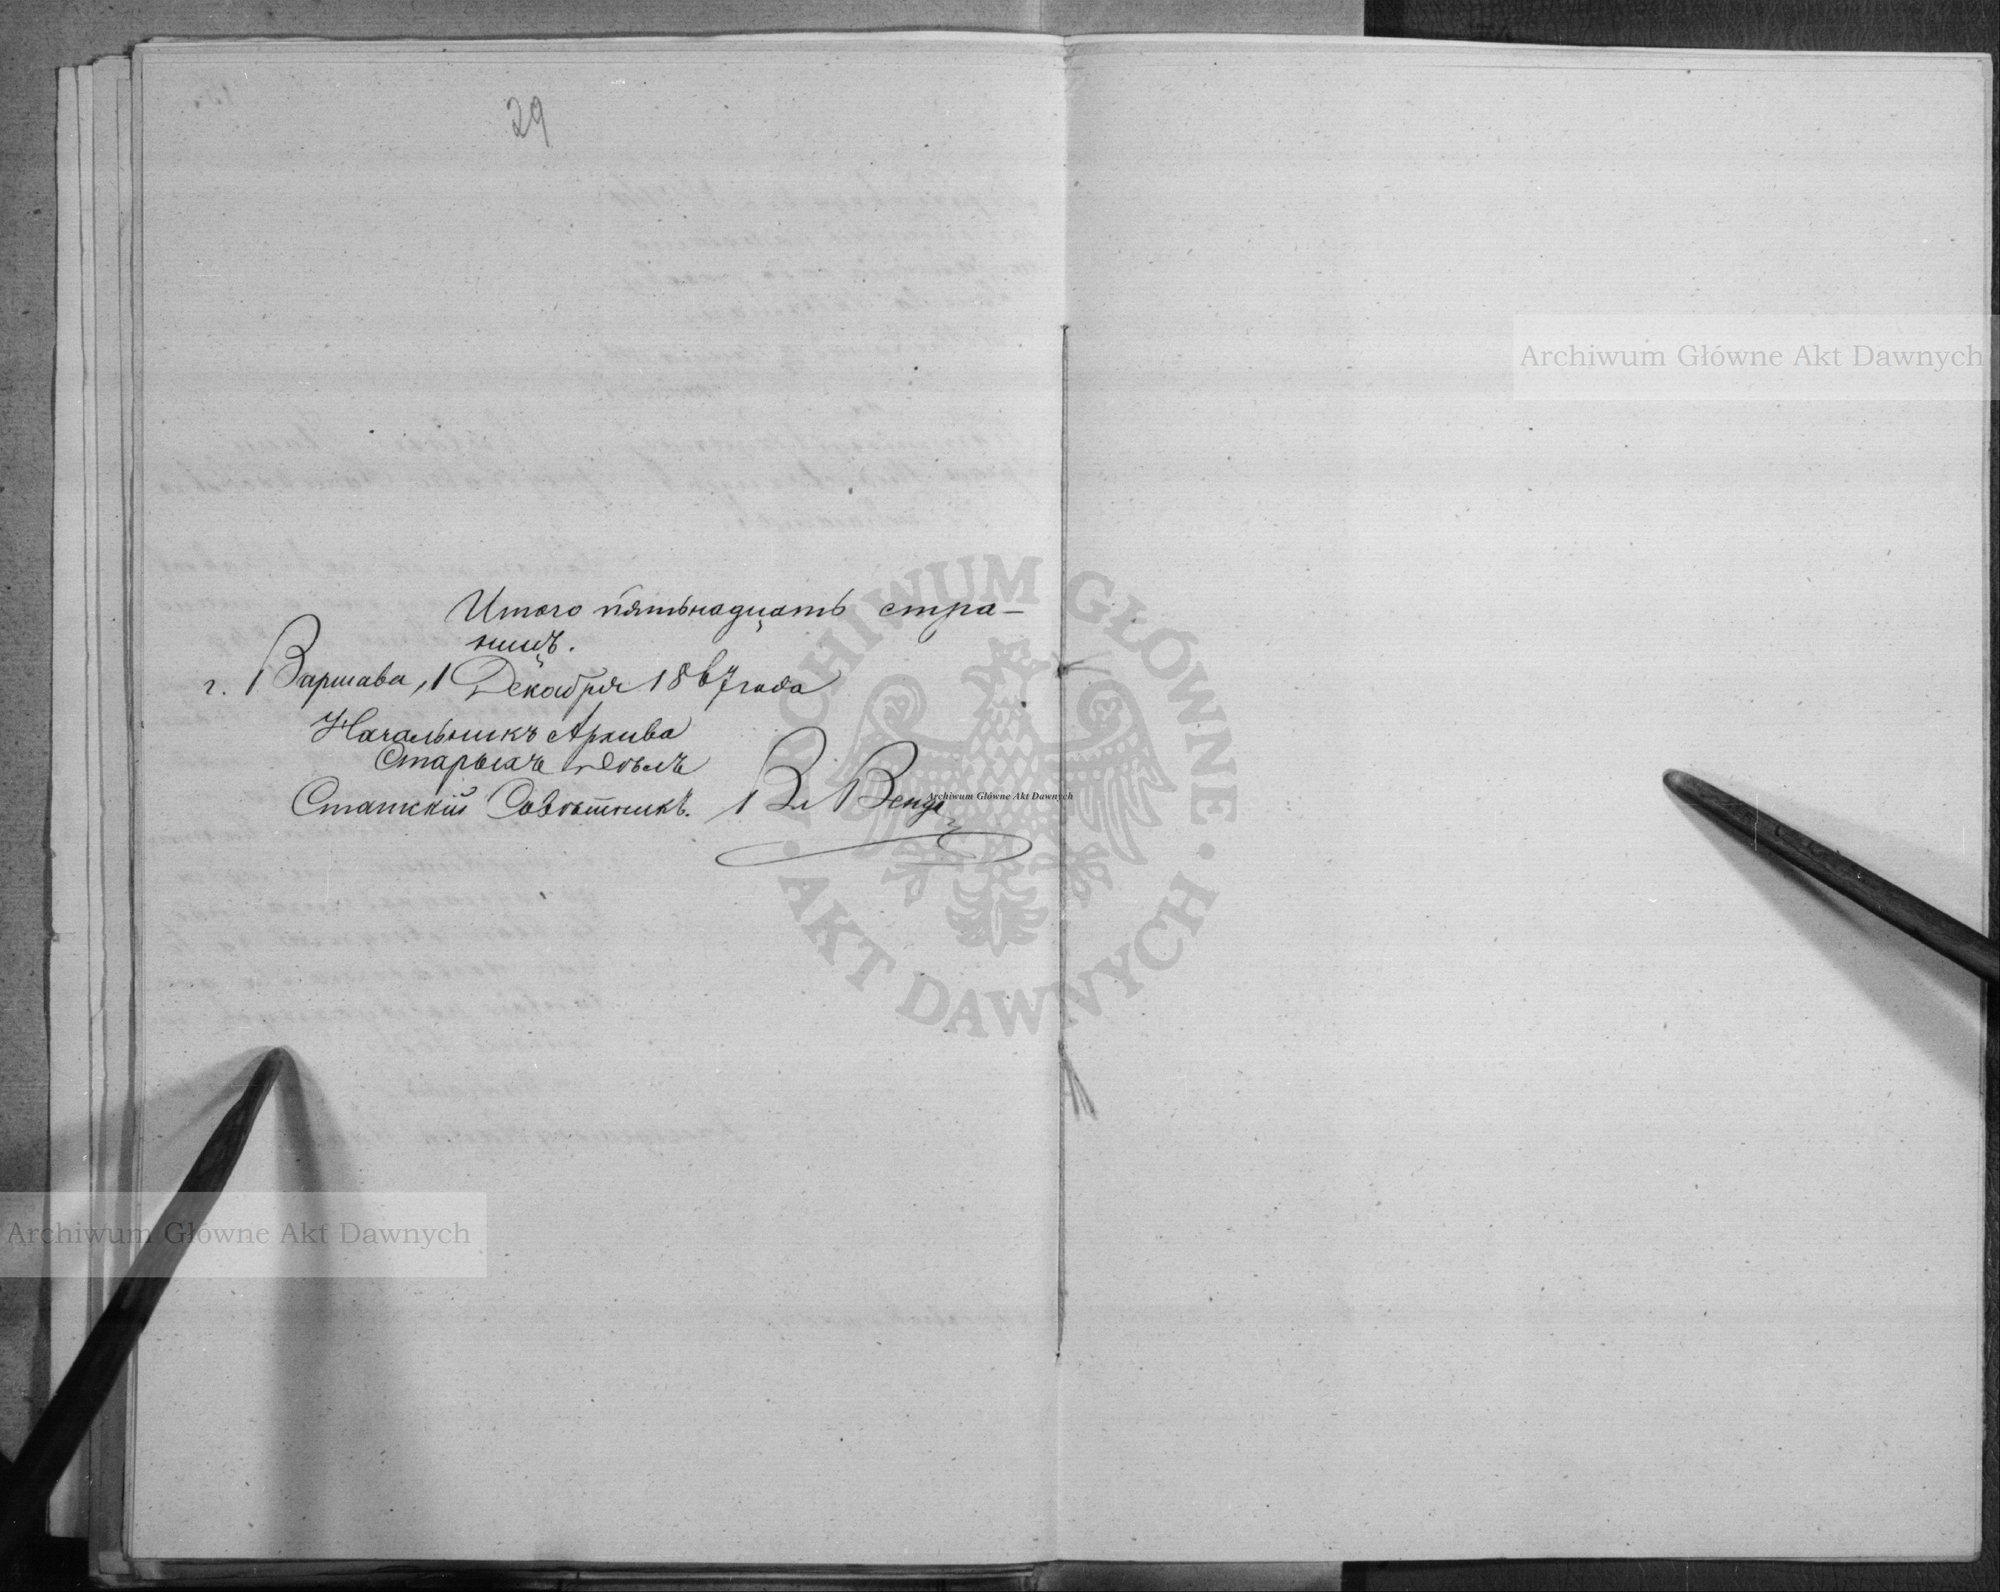 29
Итого пятьнадцать стра-
ницъ.
г. Варшава, 1 Декабря 1867 года
Начальникъ Архива
Старыхъ Дѣлъ
Статскій Совѣтникъ.
Archiwum Główne Akt Dawnych
Archiwum Główne Akt Dawnych
Archiwum Główne Akt Dawnych
ARCHIWUM GŁÓWNE · AKT DAWNYCH ·